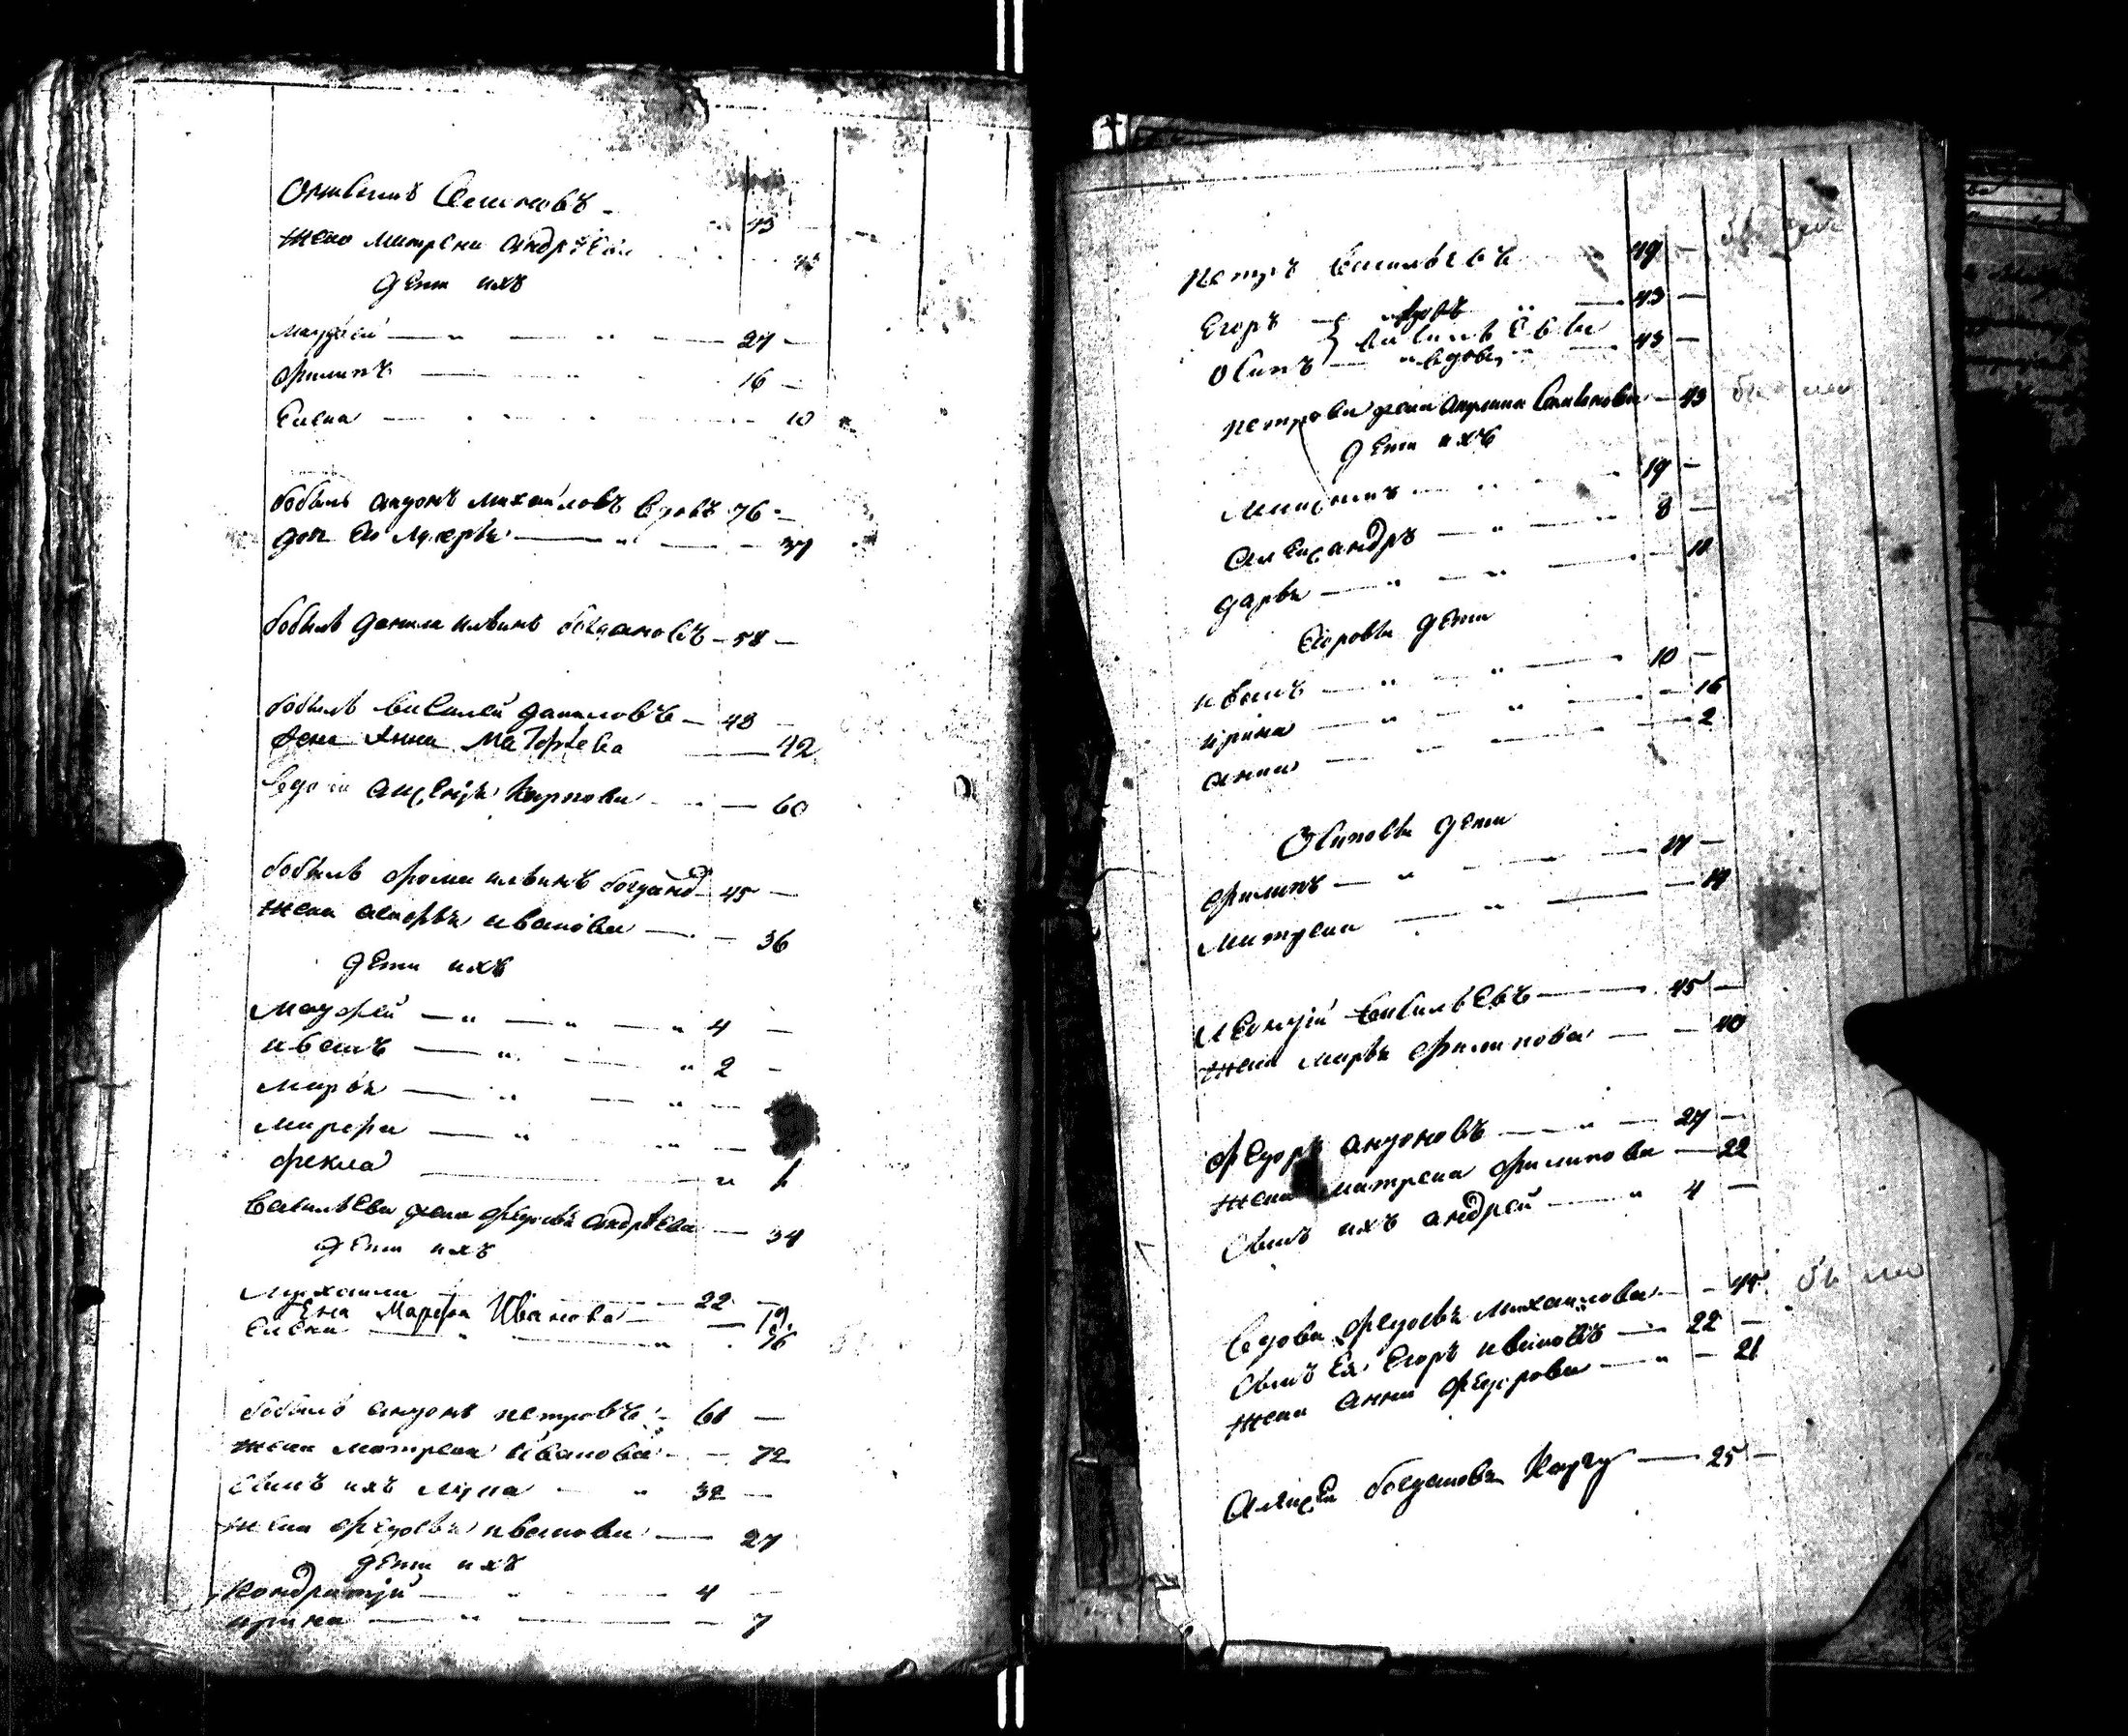 Семеновъ 43
жена матрена андреева
дети ихъ
матфей 27
филипъ 16
елена 10
бобыль антонъ михайловъ 76
дочь ево лукерья 37
бобыль данила ильинъ богдановъ 58
бобыль василей даниловъ 48
жена Анна Матфеева 42
вдова карпова 60
бобыль фома ильинъ богданов 45
жена марфа иванова 36
дети ихъ
матфей 4
иванъ 2
марья
марфа
фекла
васильева жена федосья андреева 34
дети ихъ
22
жена Марфа Иванова 19
елена 16
бобыль антонъ петровъ 61
жена матрена иванова 72
сынъ ихъ лука 32
жена федосья иванова 27
дети ихъ
кондратий 4
ирина 7
петръ васильевъ 49
егоръ вдовъ 43
васильевы
осипъ вдовъ 43
петрова жена акулина семенова 43
дети ихъ
19
александръ 8
дарья
егоровы дети
иванъ 10
ирина 16
анна 2
осиповы дети
филипъ 17
матрена 14
леонтий васильевъ 45
жена марья филипова 40
федоръ антоновъ 27
жена матрена филипова 22
сынъ ихъ андрей 4
вдова федосья михайлова
сынъ ея егоръ ивановъ 22
жена анна федорова 21
алексей богдановъ 25